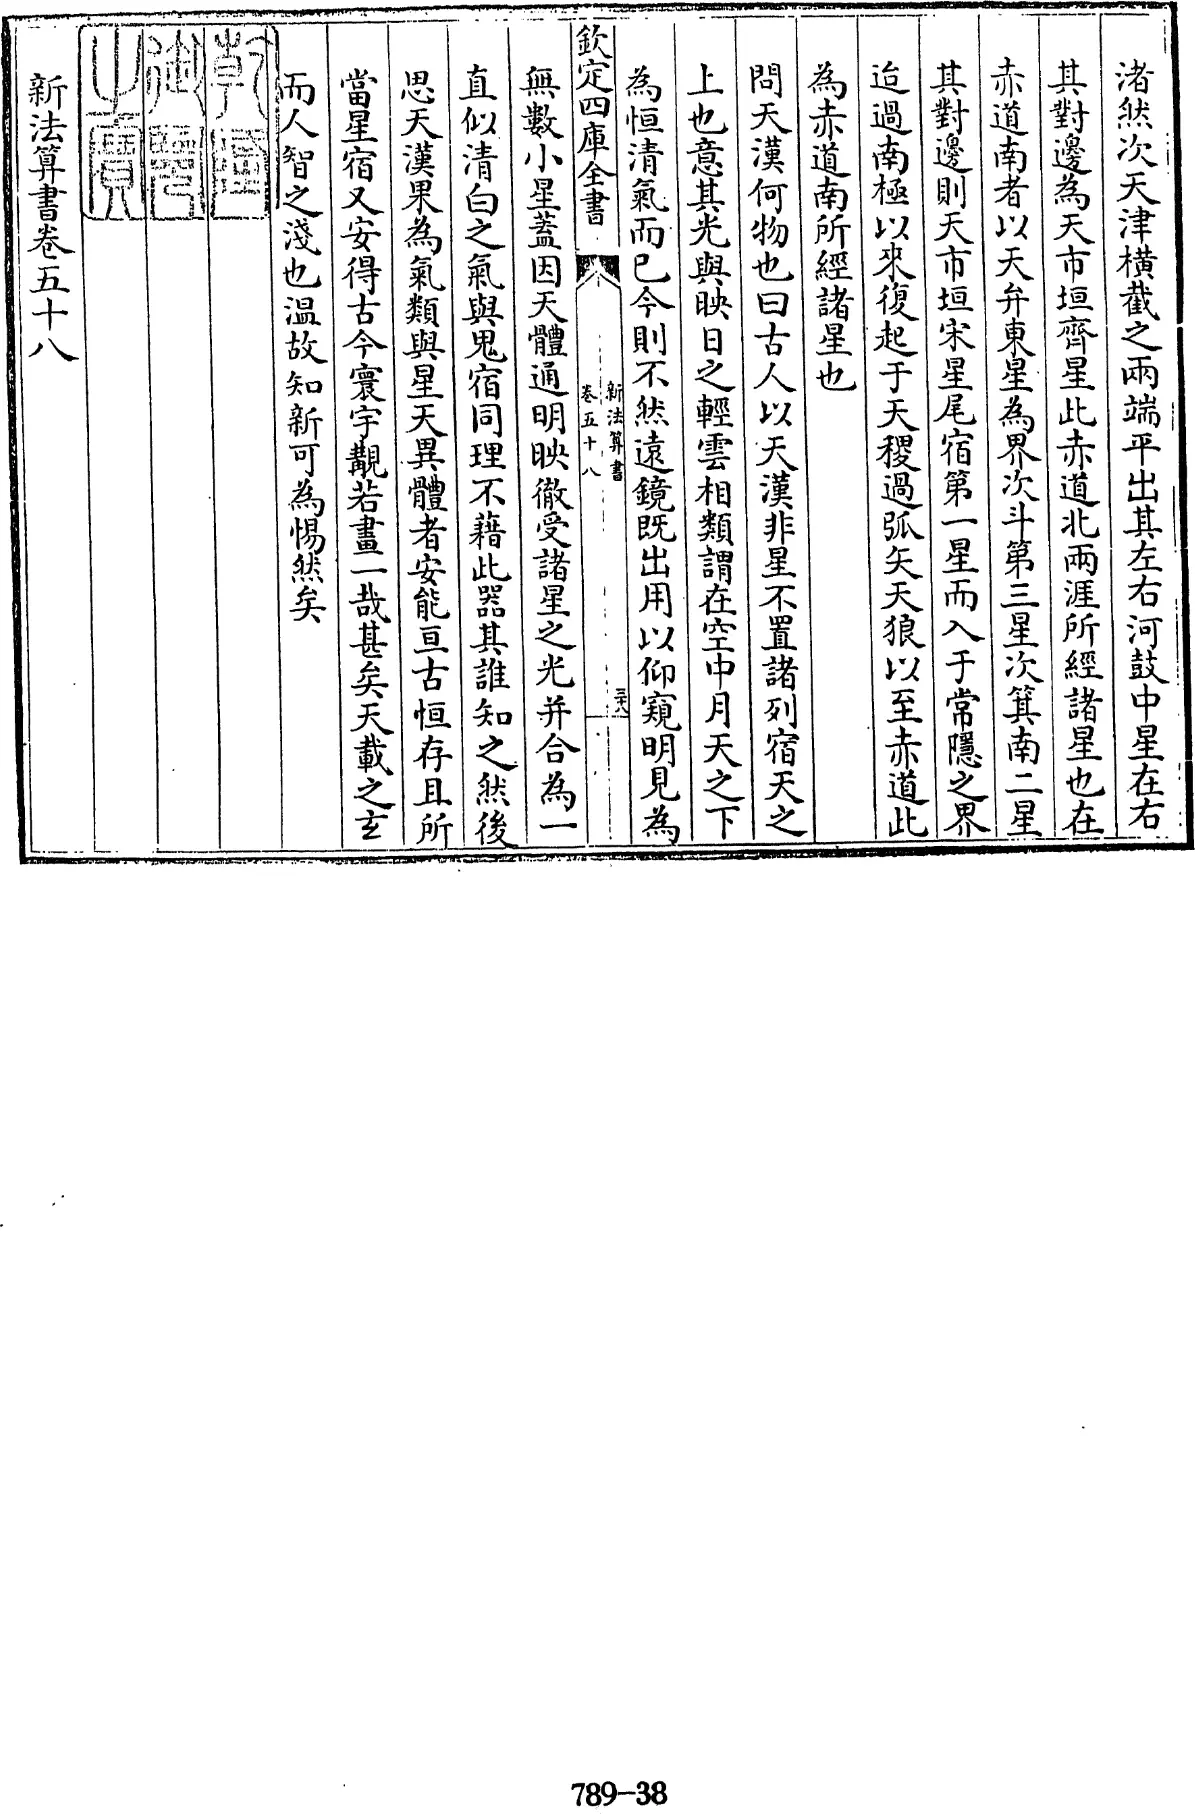 渚然次天津橫截之兩端平出其左右河鼓中星在右
其對邊為天市垣齊星此赤道北兩涯所經諸星也在
赤道南者以天弁東星為界次斗第三星次箕南二星
其對邊則天市垣宋星尾宿第一星而入于常隱之界
迨過南極以來復起于天稷過弧矢天狼以至赤道此
為赤道南所經諸星也
問天漢何物也曰古人以天漢非星不置諸列宿天之
上也意其光與映日之輕雲相類謂在空中月天之下
為恒清氣而已今則不然遠鏡既出用以仰窺明見為
欽定四庫全書
新法算書
卷五十八
三十八
無數小星蓋因天體通明映徹受諸星之光并合為一
直似清白之氣與鬼宿同理不藉此器其誰知之然後
思天漢果為氣類與星天異體者安能亘古恒存且所
當星宿又安得古今寰宇覩若畫一哉甚矣天載之玄
而人智之淺也温故知新可為惕然矣
乾隆
御覽
之寶
新法算書卷五十八
789-38